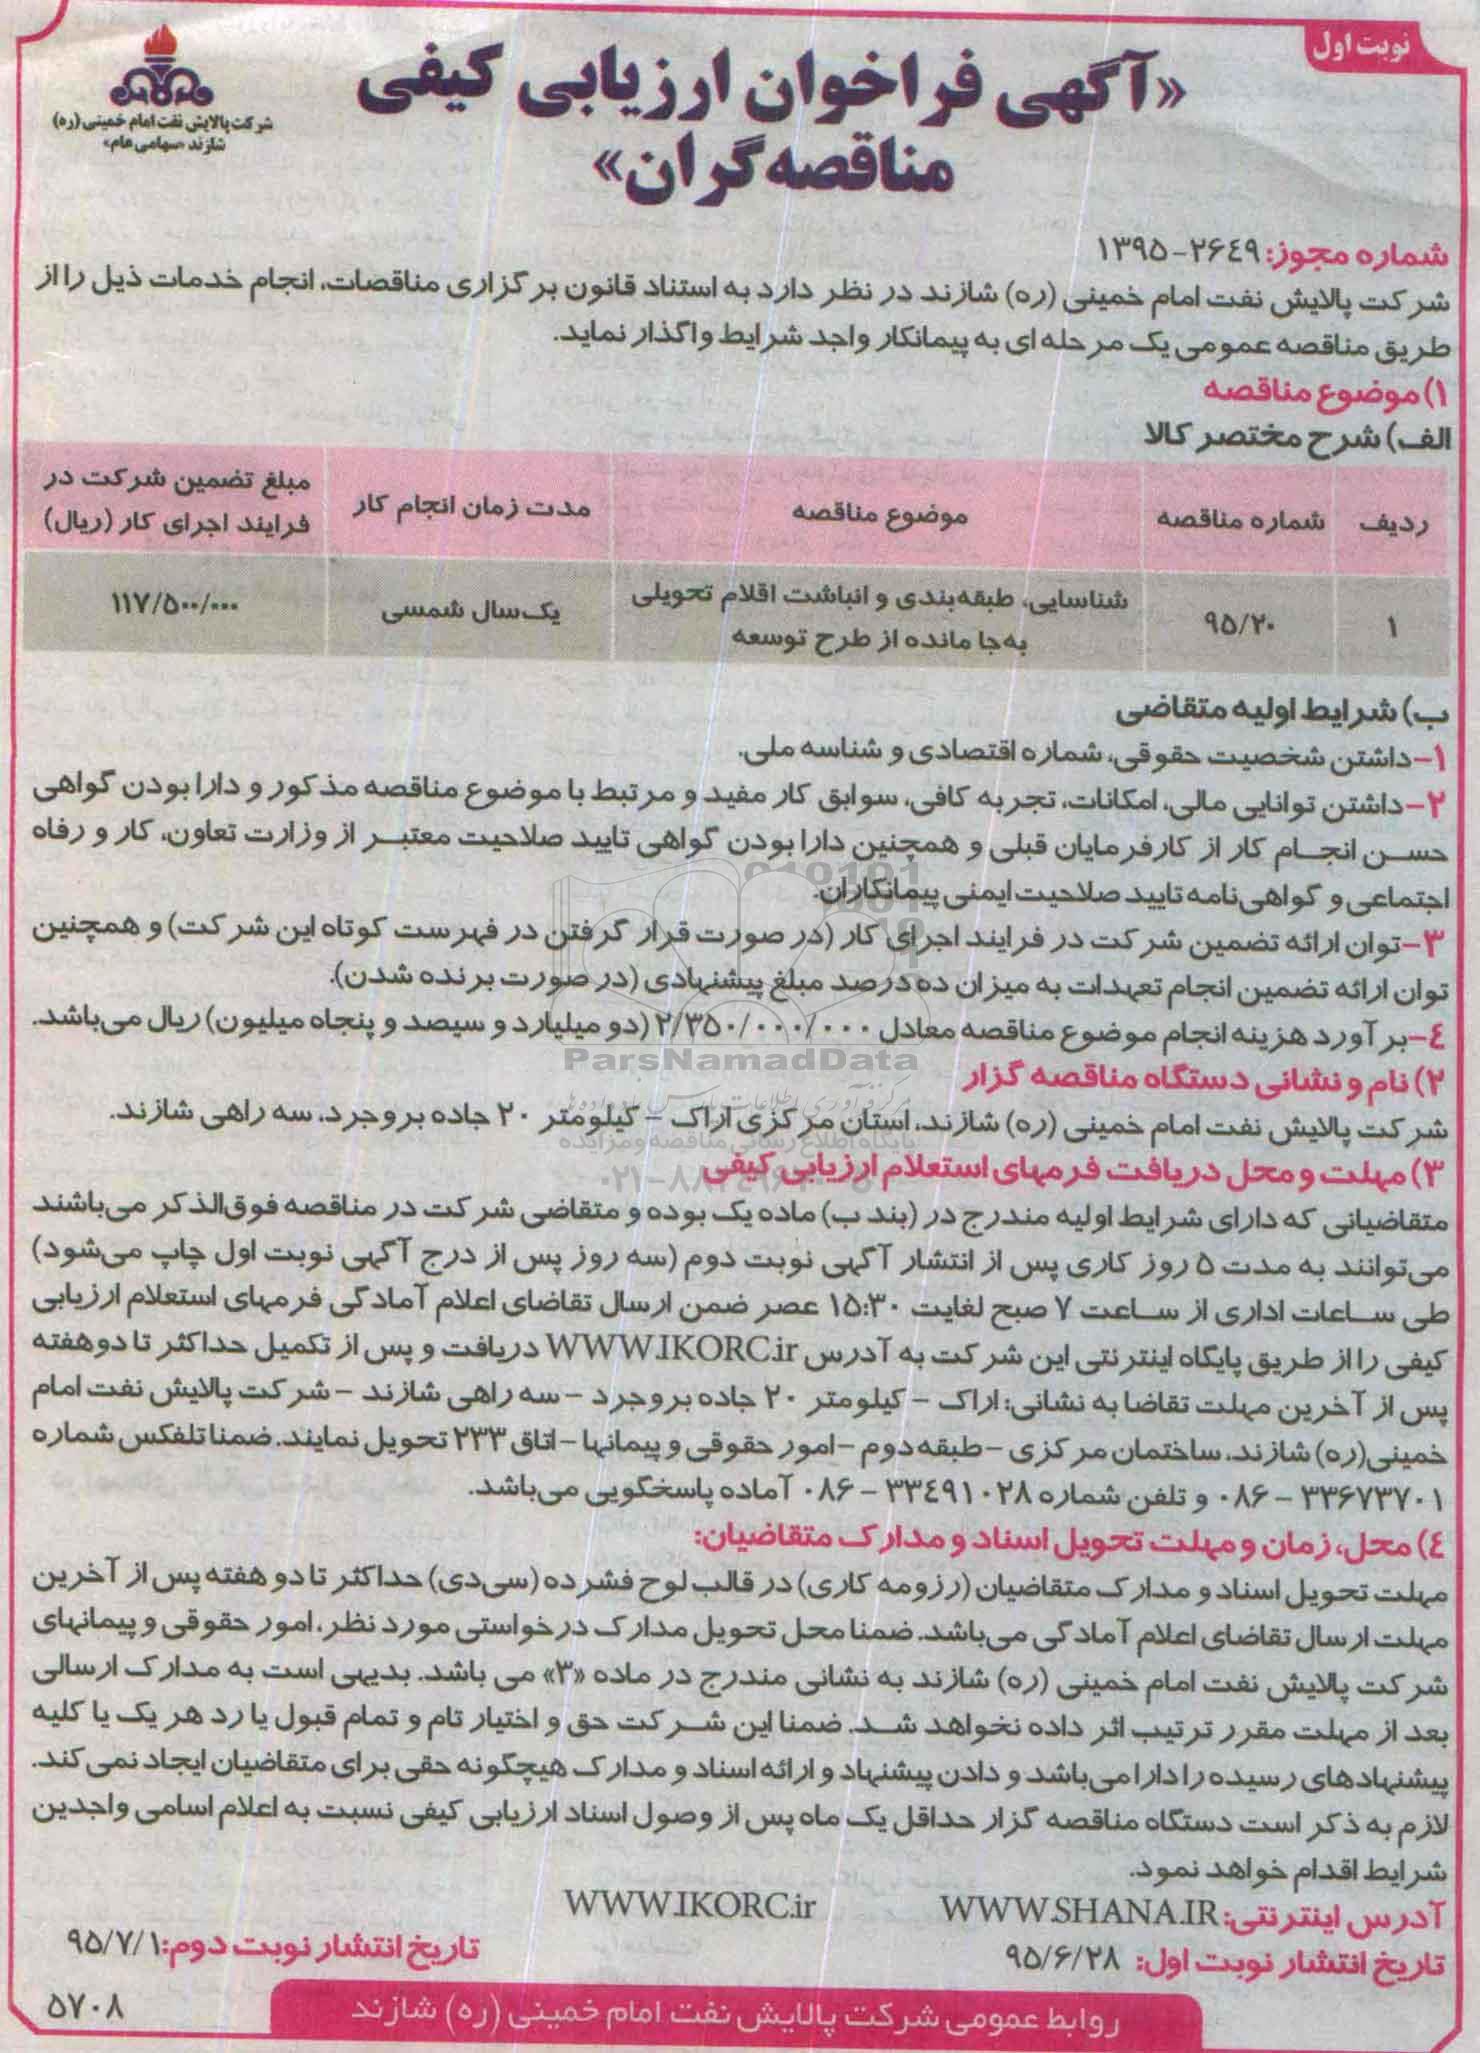 نوبت اول
شرکت پالایش نفت امام خمینی (ره)
شازند «سهامی عام»
«آگهی فراخوان ارزیابی کیفی
مناقصه‌گران»
شماره مجوز: ۲۶۴۹-۱۳۹۵
شرکت پالایش نفت امام خمینی (ره) شازند در نظر دارد به استناد قانون برگزاری مناقصات، انجام خدمات ذیل را از
طریق مناقصه عمومی یک مرحله ای به پیمانکار واجد شرایط واگذار نماید.
۱) موضوع مناقصه
الف) شرح مختصر کالا
ردیف | شماره مناقصه | موضوع مناقصه | مدت زمان انجام کار | مبلغ تضمین شرکت در
فرایند اجرای کار (ریال)
۱ | ۹۵/۲۰ | شناسایی، طبقه‌بندی و انباشت اقلام تحویلی
به‌جا مانده از طرح توسعه | یک‌سال شمسی | ۱۱۷/۵۰۰/۰۰۰
ب) شرایط اولیه متقاضی
۱-داشتن شخصیت حقوقی، شماره اقتصادی و شناسه ملی.
۲-داشتن توانایی مالی، امکانات، تجربه کافی، سوابق کار مفید و مرتبط با موضوع مناقصه مذکور و دارا بودن گواهی
حسن انجام کار از کارفرمایان قبلی و همچنین دارا بودن گواهی تایید صلاحیت معتبر از وزارت تعاون، کار و رفاه
اجتماعی و گواهی‌نامه تایید صلاحیت ایمنی پیمانکاران.
۳-توان ارائه تضمین شرکت در فرایند اجرای کار (در صورت قرار گرفتن در فهرست کوتاه این شرکت) و همچنین
توان ارائه تضمین انجام تعهدات به میزان ده درصد مبلغ پیشنهادی (در صورت برنده شدن).
۴-برآورد هزینه انجام موضوع مناقصه معادل ۲/۳۵۰/۰۰۰/۰۰۰ (دو میلیارد و سیصد و پنجاه میلیون) ریال می‌باشد.
ParsNamadData
۲) نام و نشانی دستگاه مناقصه گزار
شرکت پالایش نفت امام خمینی (ره) شازند، استان مرکزی اراک - کیلومتر ۲۰ جاده بروجرد، سه راهی شازند.
پایگاه اطلاع رسانی مناقصه و مزایده
۳) مهلت و محل دریافت فرمهای استعلام ارزیابی کیفی
متقاضیانی که دارای شرایط اولیه مندرج در (بند ب) ماده یک بوده و متقاضی شرکت در مناقصه فوق‌الذکر می‌باشند
می‌توانند به مدت ۵ روز کاری پس از انتشار آگهی نوبت دوم (سه روز پس از درج آگهی نوبت اول چاپ می‌شود)
طی ساعات اداری از ساعت ۷ صبح لغایت ۱۵:۳۰ عصر ضمن ارسال تقاضای اعلام آمادگی فرمهای استعلام ارزیابی
کیفی را از طریق پایگاه اینترنتی این شرکت به آدرس WWW.IKORC.ir دریافت و پس از تکمیل حداکثر تا دو هفته
پس از آخرین مهلت تقاضا به نشانی: اراک - کیلومتر ۲۰ جاده بروجرد - سه راهی شازند - شرکت پالایش نفت امام
خمینی(ره) شازند، ساختمان مرکزی - طبقه دوم - امور حقوقی و پیمانها - اتاق ۲۳۳ تحویل نمایند. ضمنا تلفکس شماره
۳۳۶۷۳۷۰۱ - ۰۸۶ و تلفن شماره ۳۳۴۹۱۰۲۸ - ۰۸۶ آماده پاسخگویی می‌باشد.
۴) محل، زمان و مهلت تحویل اسناد و مدارک متقاضیان:
مهلت تحویل اسناد و مدارک متقاضیان (رزومه کاری) در قالب لوح فشرده (سی‌دی) حداکثر تا دو هفته پس از آخرین
مهلت ارسال تقاضای اعلام آمادگی می‌باشد. ضمنا محل تحویل مدارک درخواستی مورد نظر، امور حقوقی و پیمانهای
شرکت پالایش نفت امام خمینی (ره) شازند به نشانی مندرج در ماده «۳» می باشد. بدیهی است به مدارک ارسالی
بعد از مهلت مقرر ترتیب اثر داده نخواهد شد. ضمنا این شرکت حق و اختیار تام و تمام قبول یا رد هر یک یا کلیه
پیشنهادهای رسیده را دارا می‌باشد و دادن پیشنهاد و ارائه اسناد و مدارک هیچگونه حقی برای متقاضیان ایجاد نمی کند.
لازم به ذکر است دستگاه مناقصه گزار حداقل یک ماه پس از وصول اسناد ارزیابی کیفی نسبت به اعلام اسامی واجدین
شرایط اقدام خواهد نمود.
آدرس اینترنتی: WWW.SHANA.IR WWW.IKORC.ir
تاریخ انتشار نوبت اول: ۹۵/۶/۲۸ تاریخ انتشار نوبت دوم: ۹۵/۷/۱
روابط عمومی شرکت پالایش نفت امام خمینی (ره) شازند
۵۷۰۸